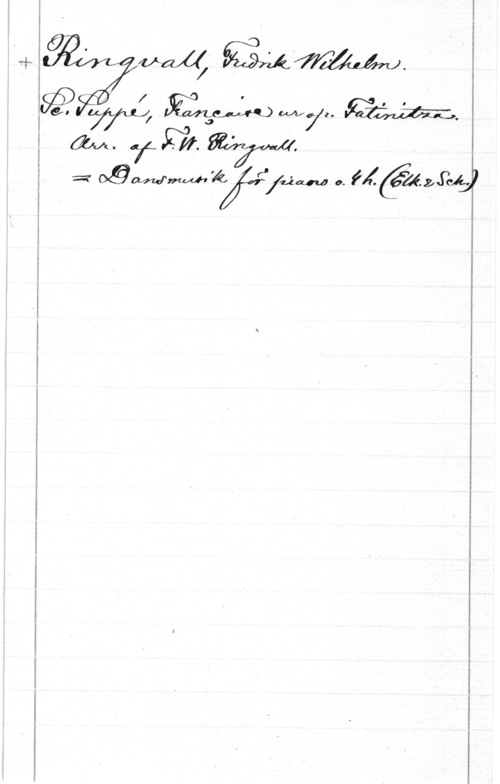 + Ringvall, Fredrik Wilhelm.
Se. Suppé, Française ur op. Fatinitza.
Arr. af F. W. Ringvall.
= Dansmusik för piano a. 4 h. (Elk. & Sch.)